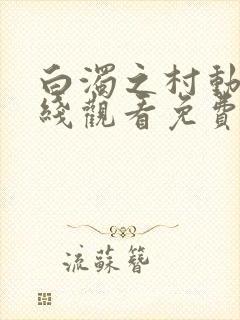 白濁之村動
綫觀看免費
流蘇簪